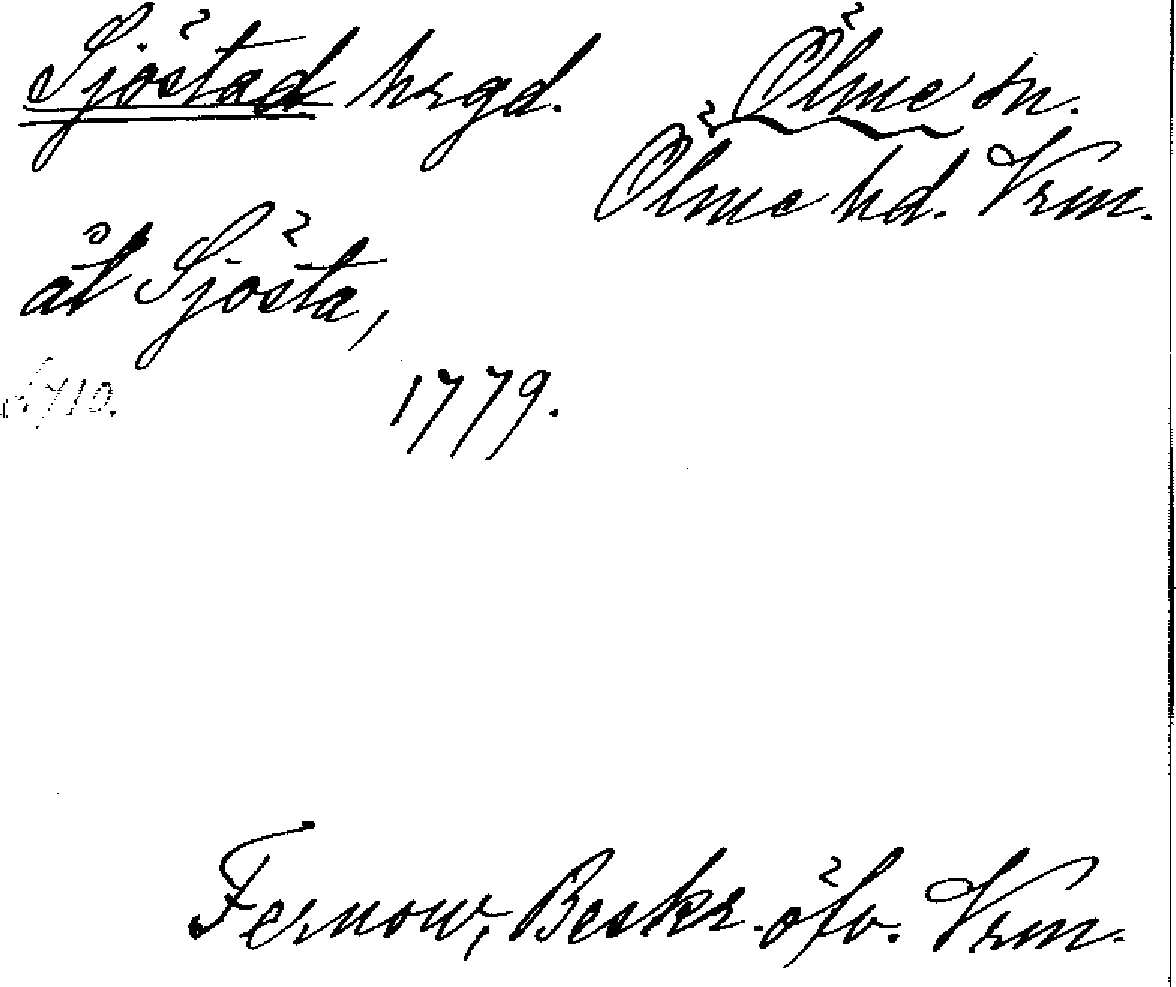 Sjöstad hrgd.
Ölme sn.
Ölme hd. Vrm.
åt Sjösta,
s. 710.
1779.
Fernow, Beskr. öfv. Vrm.